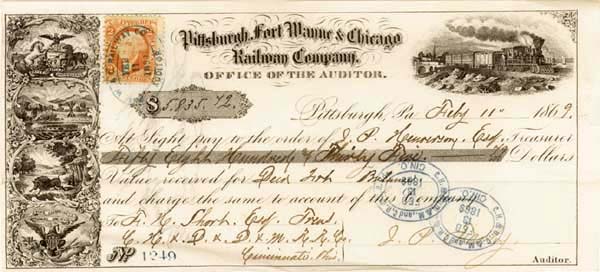 Pittsburgh, Fort Wayne & Chicago
Railway Company,
OFFICE OF THE AUDITOR.
$5,835.42
Pittsburgh, Pa. Feby 11 1869.
At Sight pay to the order of J. P. Henderson, Esq. Treasurer
Fifty Eight Hundred & Thirty Five Dollars
Value received for Balance
and charge the same to account of this Company
To F. H. Short Esq Treas
C. H. & D. & D. & M. R. R. Co.
Cincinnati, Ohio.
No 1249
Auditor.
FEB
13
1869
CIN. O.
FEB
13
1869
CIN. O.